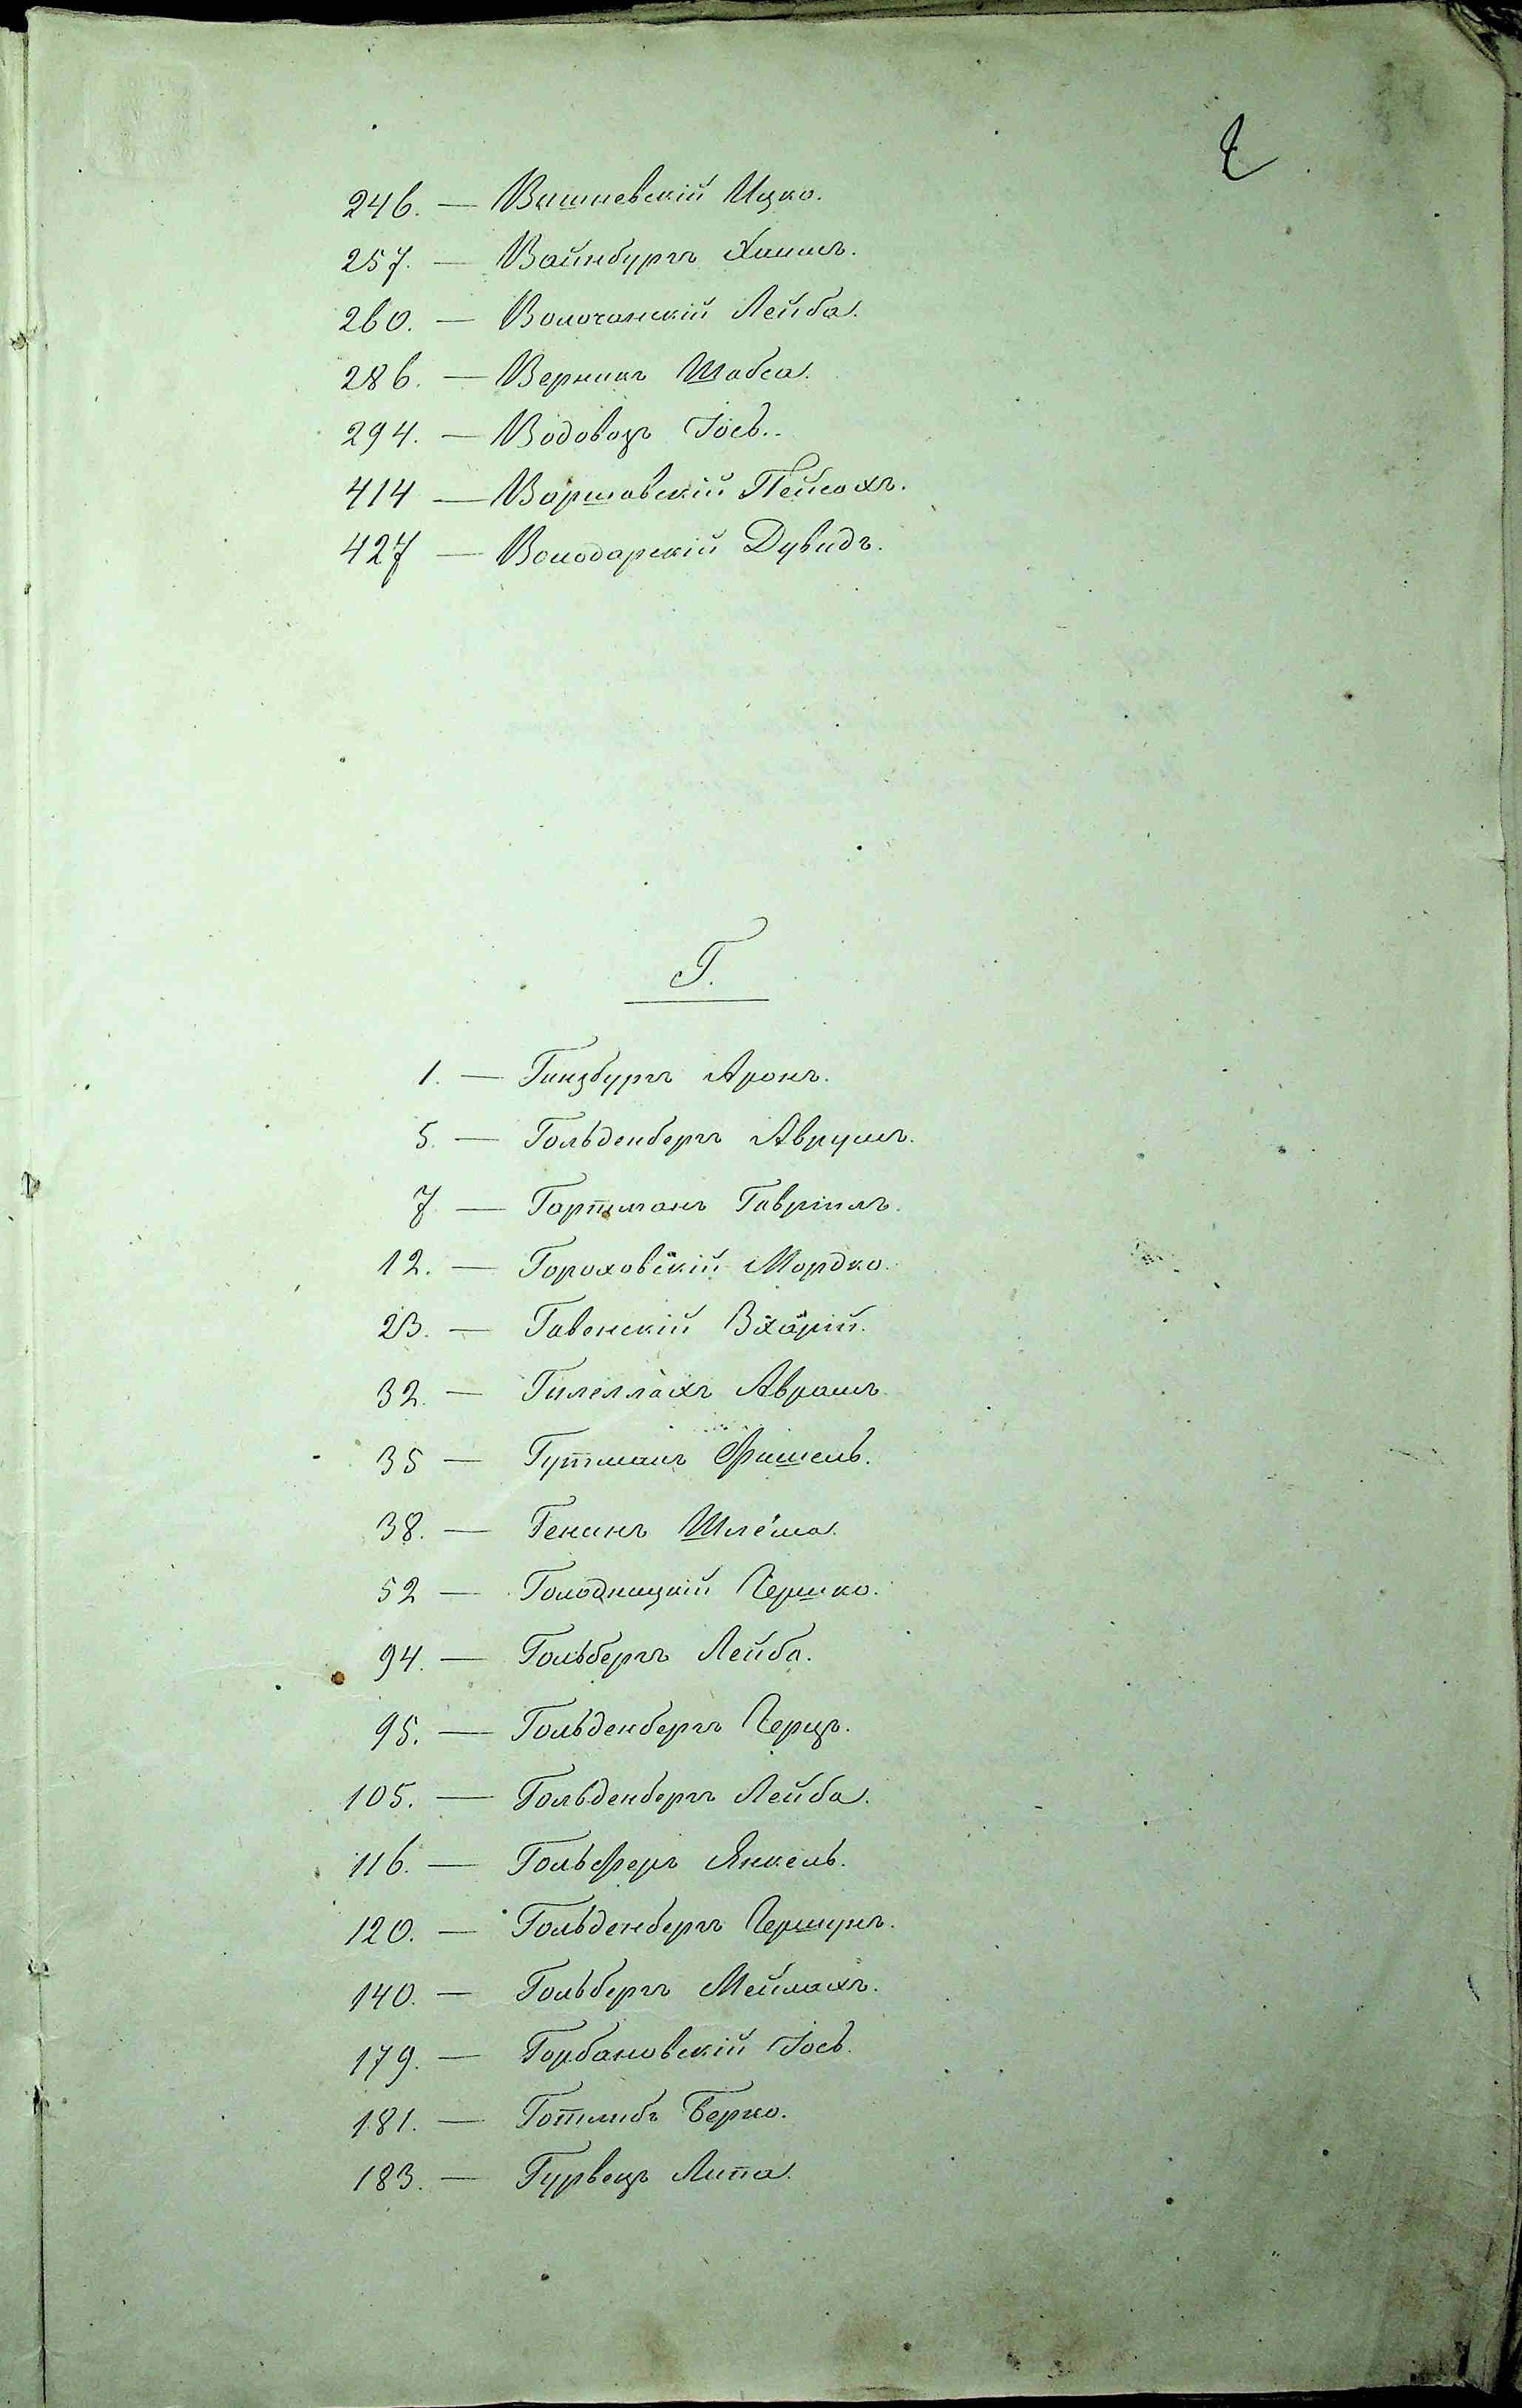 2
246. — Вишневскій Ицко.
257. — Вайнбургъ Хаимъ.
260. — Волочанскій Лейба.
286. — Верникъ Шабса.
294. — Водовозъ Іось.
414 — Варшавскій Пейсахъ.
427 — Володарскій Дувидъ.
Г.
1. — Гинзбургъ Аронъ.
5. — Гольденбергъ Аврумъ.
7 — Гартманъ Гавріилъ.
12. — Гороховскій Мордко.
23. — Гавенскій
32. — Гилеллахъ Аврамъ.
35 — Гутманъ Фишель.
38. — Генинъ Шлёма.
52 — Голодницкій Гершко.
94. — Гольбергъ Лейба.
95. — Гольденбергъ Герцъ.
105. — Гольденбергъ Лейба.
116. — Гольферъ Янкель.
120. — Гольденбергъ Гершунъ.
140. — Гольбергъ Меймахъ.
179. — Горбановскій Іось.
181. — Готлибъ Берко.
183. — Гурвецъ Липа.